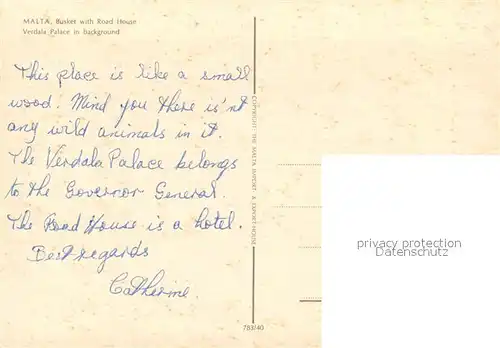 MALTA. Busket with Road House
Verdala Palace in background
This place is like a small
wood. Mind you there is'nt
any wild animals in it.
The Verdala Palace belongs
to the Governor General.
The Road House is a hotel.
Best regards
Catherine.
COPYRIGHT: THE MALTA IMPORT & EXPORT-HOUSE
783/40
privacy protection
Datenschutz